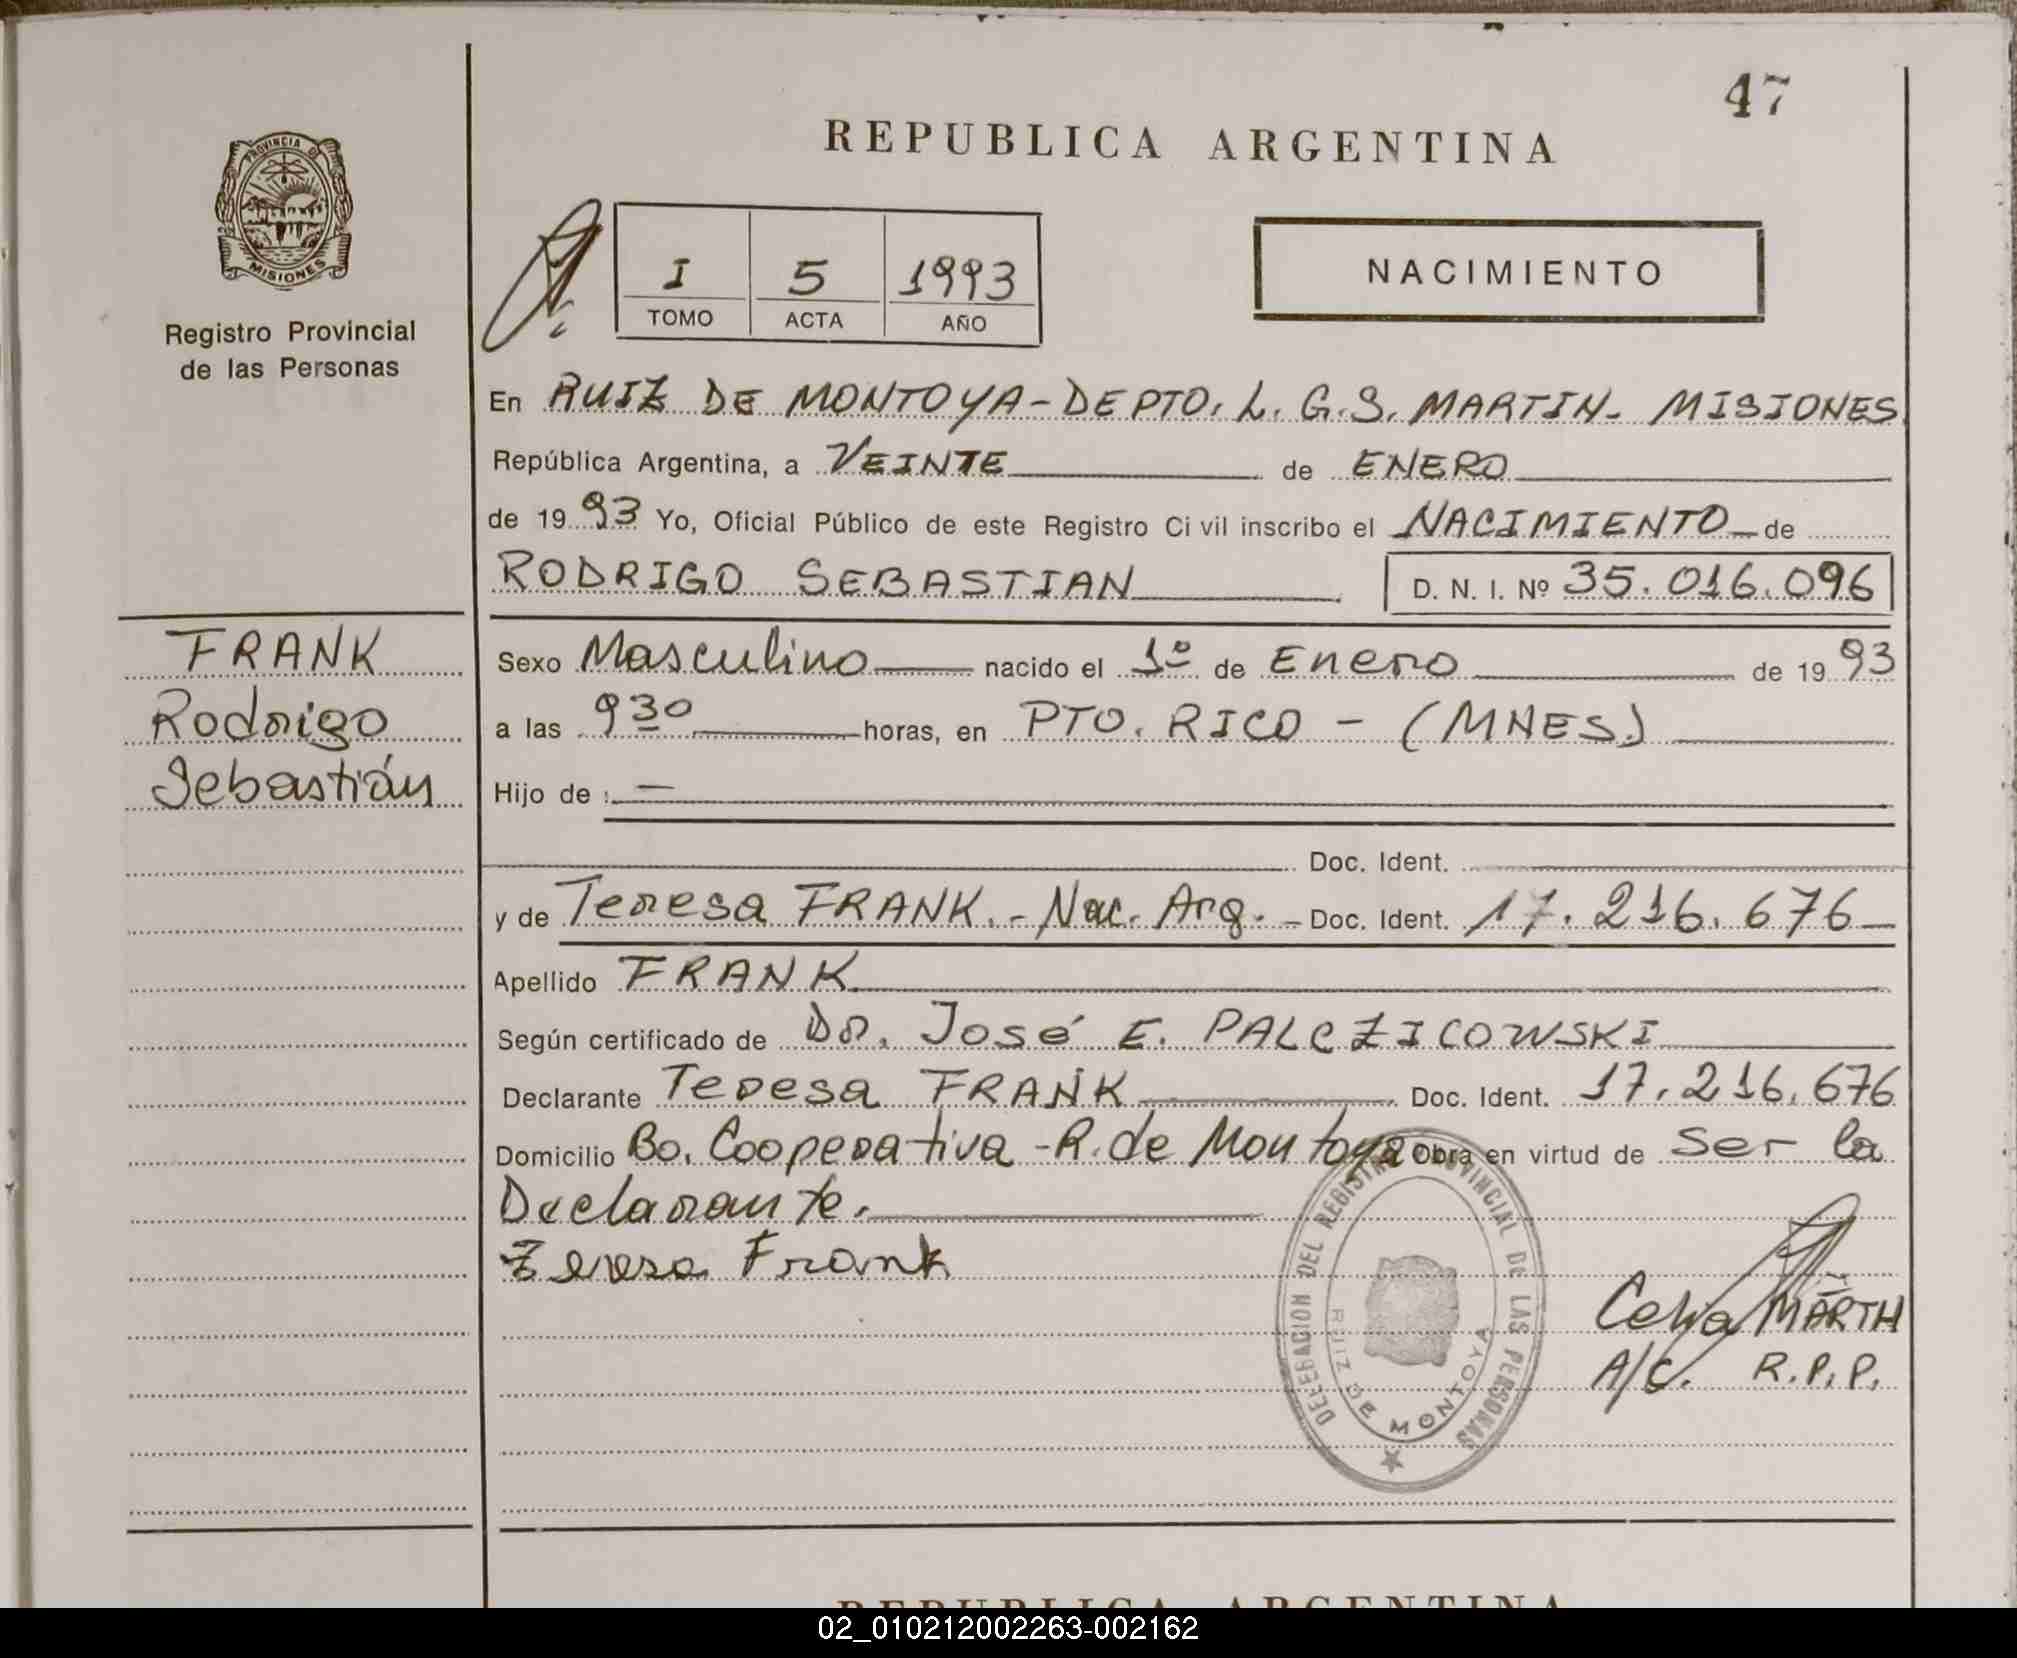 47
REPUBLICA ARGENTINA
PROVINCIA DE
MISIONES
Registro Provincial
de las Personas
I 5 1993
TOMO ACTA AÑO
NACIMIENTO
En RUIZ DE MONTOYA-DEPTO. L. G. S. MARTIN- MISIONES
República Argentina, a VEINTE de ENERO
de 1993 Yo, Oficial Público de este Registro Civil inscribo el NACIMIENTO de
RODRIGO SEBASTIAN D. N. I. Nº 35.016.096
FRANK
Rodrigo
Sebastián
Sexo Masculino nacido el 1º de Enero de 1993
a las 9 30 horas, en PTO. RICO - (MNES.)
Hijo de : —
Doc. Ident.
y de Teresa FRANK.- Nac. Arg. - Doc. Ident. 17.216.676
Apellido FRANK
Según certificado de Dr. José E. PALCZICOWSKI
Declarante Teresa FRANK Doc. Ident. 17.216.676
Domicilio Bo. Cooperativa - R. de Montoya Obra en virtud de ser la
Declarante.
Teresa Frank
DELEGACION DEL REGISTRO PROVINCIAL DE LAS PERSONAS
RUIZ DE MONTOYA
Celia MÄRTH
A/C. R.P.P.
REPUBLICA ARGENTINA
02_010212002263-002162